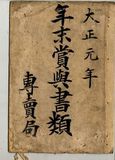 大正元年
年末賞與書類
專賣局